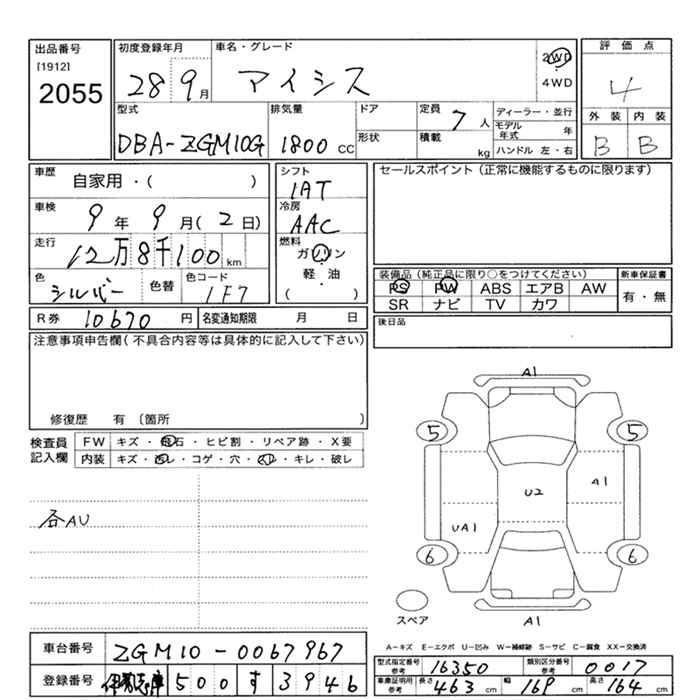 出品番号
[1912]
2055
初度登録年月
28 9月
車名・グレード
マイシス
2WD
4WD
評価点
4
外装 内装
B B
型式
DBA-ZGM10G
排気量
1800 cc
ドア
形状
定員 7人
積載 kg
ディーラー・並行
モデル年式 年
ハンドル 左・右
車歴 自家用・( )
車検 9年9月(2日)
走行 12万8千100km
色 シルバー 色替
色コード 1F7
シフト
1AT
冷房
AAC
燃料
ガソリン
・
軽・油
( )
R券 10670円 名変通知期限 月 日
セールスポイント(正常に機能するものに限ります)
装備品(純正品に限り○をつけてください)
PS PW ABS エアB AW
SR ナビ TV カワ
新車保証書
有・無
後日品
注意事項申告欄(不具合内容等は具体的に記入して下さい)
修復歴 有〔箇所 〕
検査員記入欄
FW キズ・飛石・ヒビ割・リペア跡・X要
内装 キズ・コゲ・穴・キレ・破レ
各AU
A1
5 5
U2
A1
UA1
6 6
スペア
A1
A-キズ E-エクボ U-凹み W-補修跡 S-サビ C-腐食 XX-交換済
車台番号 ZGM10-0067967
登録番号 伊勢志摩 500 す 3946
型式指定番号 参考 16350
類別区分番号 参考 0017
車庫証明用 参考 長さ 463cm 幅 169cm 高さ 164cm